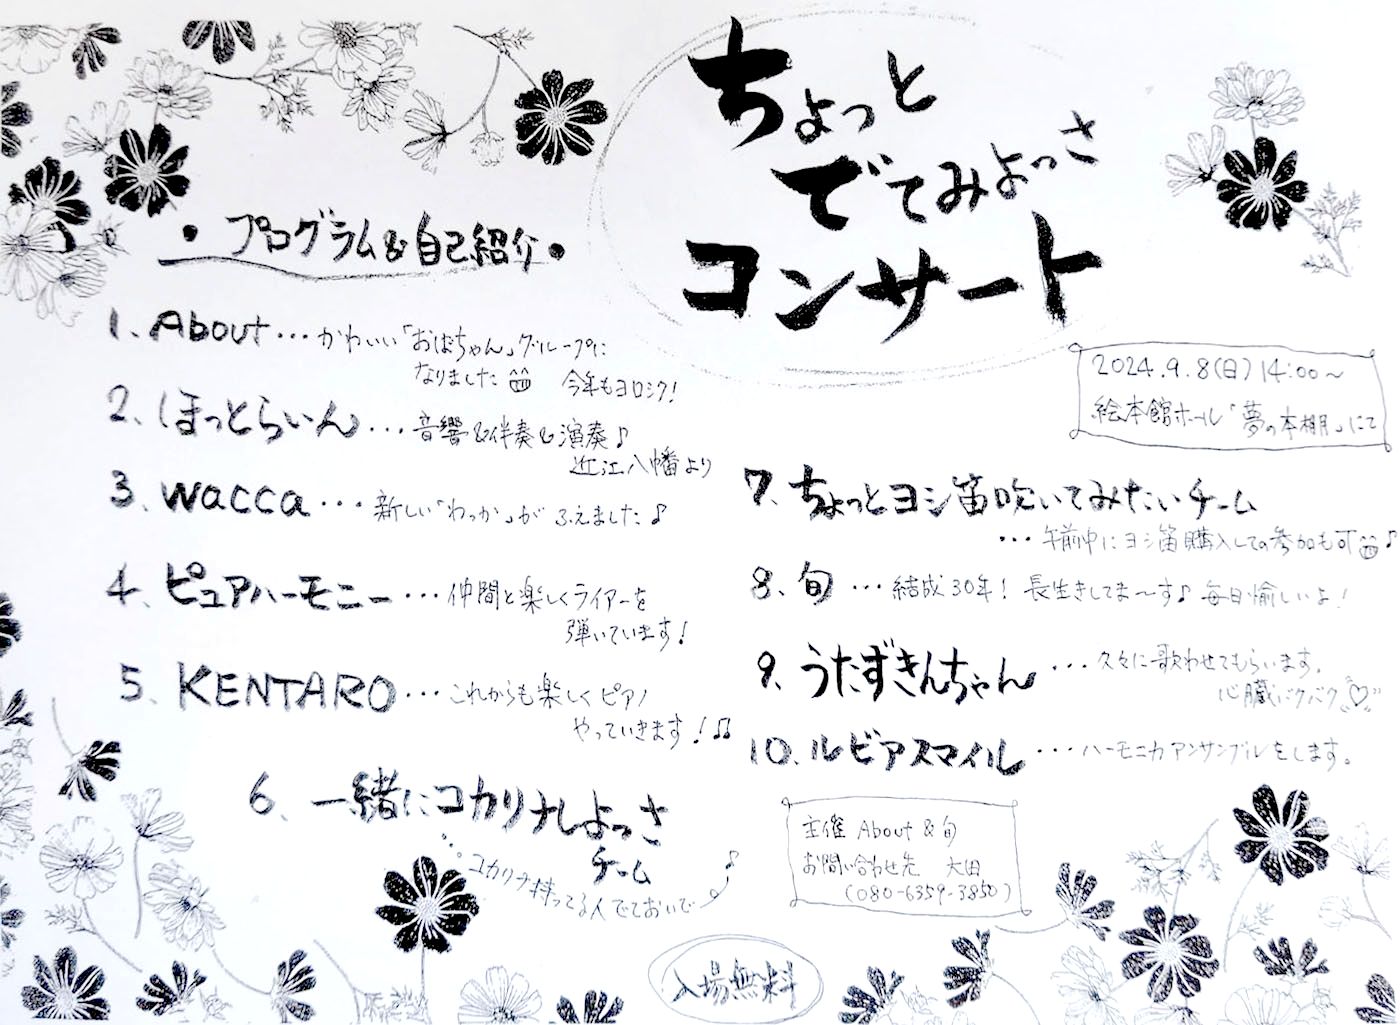 ちょっと
でてみよっさ
コンサート
2024.9.8(日)14:00〜
絵本館ホール「夢の本棚」にて
・プログラム&自己紹介・
1. About…かわいい「おばちゃん」グループに
なりました 今年もヨロシク!
2. ほっとらいん…音響&伴奏&演奏♪
近江八幡より
3. wacca…新しい「わっか」が ふえました♪
4. ピュアハーモニー…仲間と楽しくライアーを
弾いています!
5. KENTARO…これからも楽しくピアノ
やっていきます!♫
6. 一緒にコカリナしよっさ
チーム
…コカリナ持ってる人でておいで〜♪
7. ちょっとヨシ笛吹いてみたいチーム
…午前中にヨシ笛購入しての参加も可♪
8. 旬 …結成30年! 長生きしてま〜す♪ 毎日愉しいよ!
9. うたずきんちゃん…久々に歌わせてもらいます。
心臓バクバク♡
10. ルビアスマイル…ハーモニカアンサンブルをします。
主催 About &旬
お問い合わせ先 大田
(080-6359-3850)
入場無料